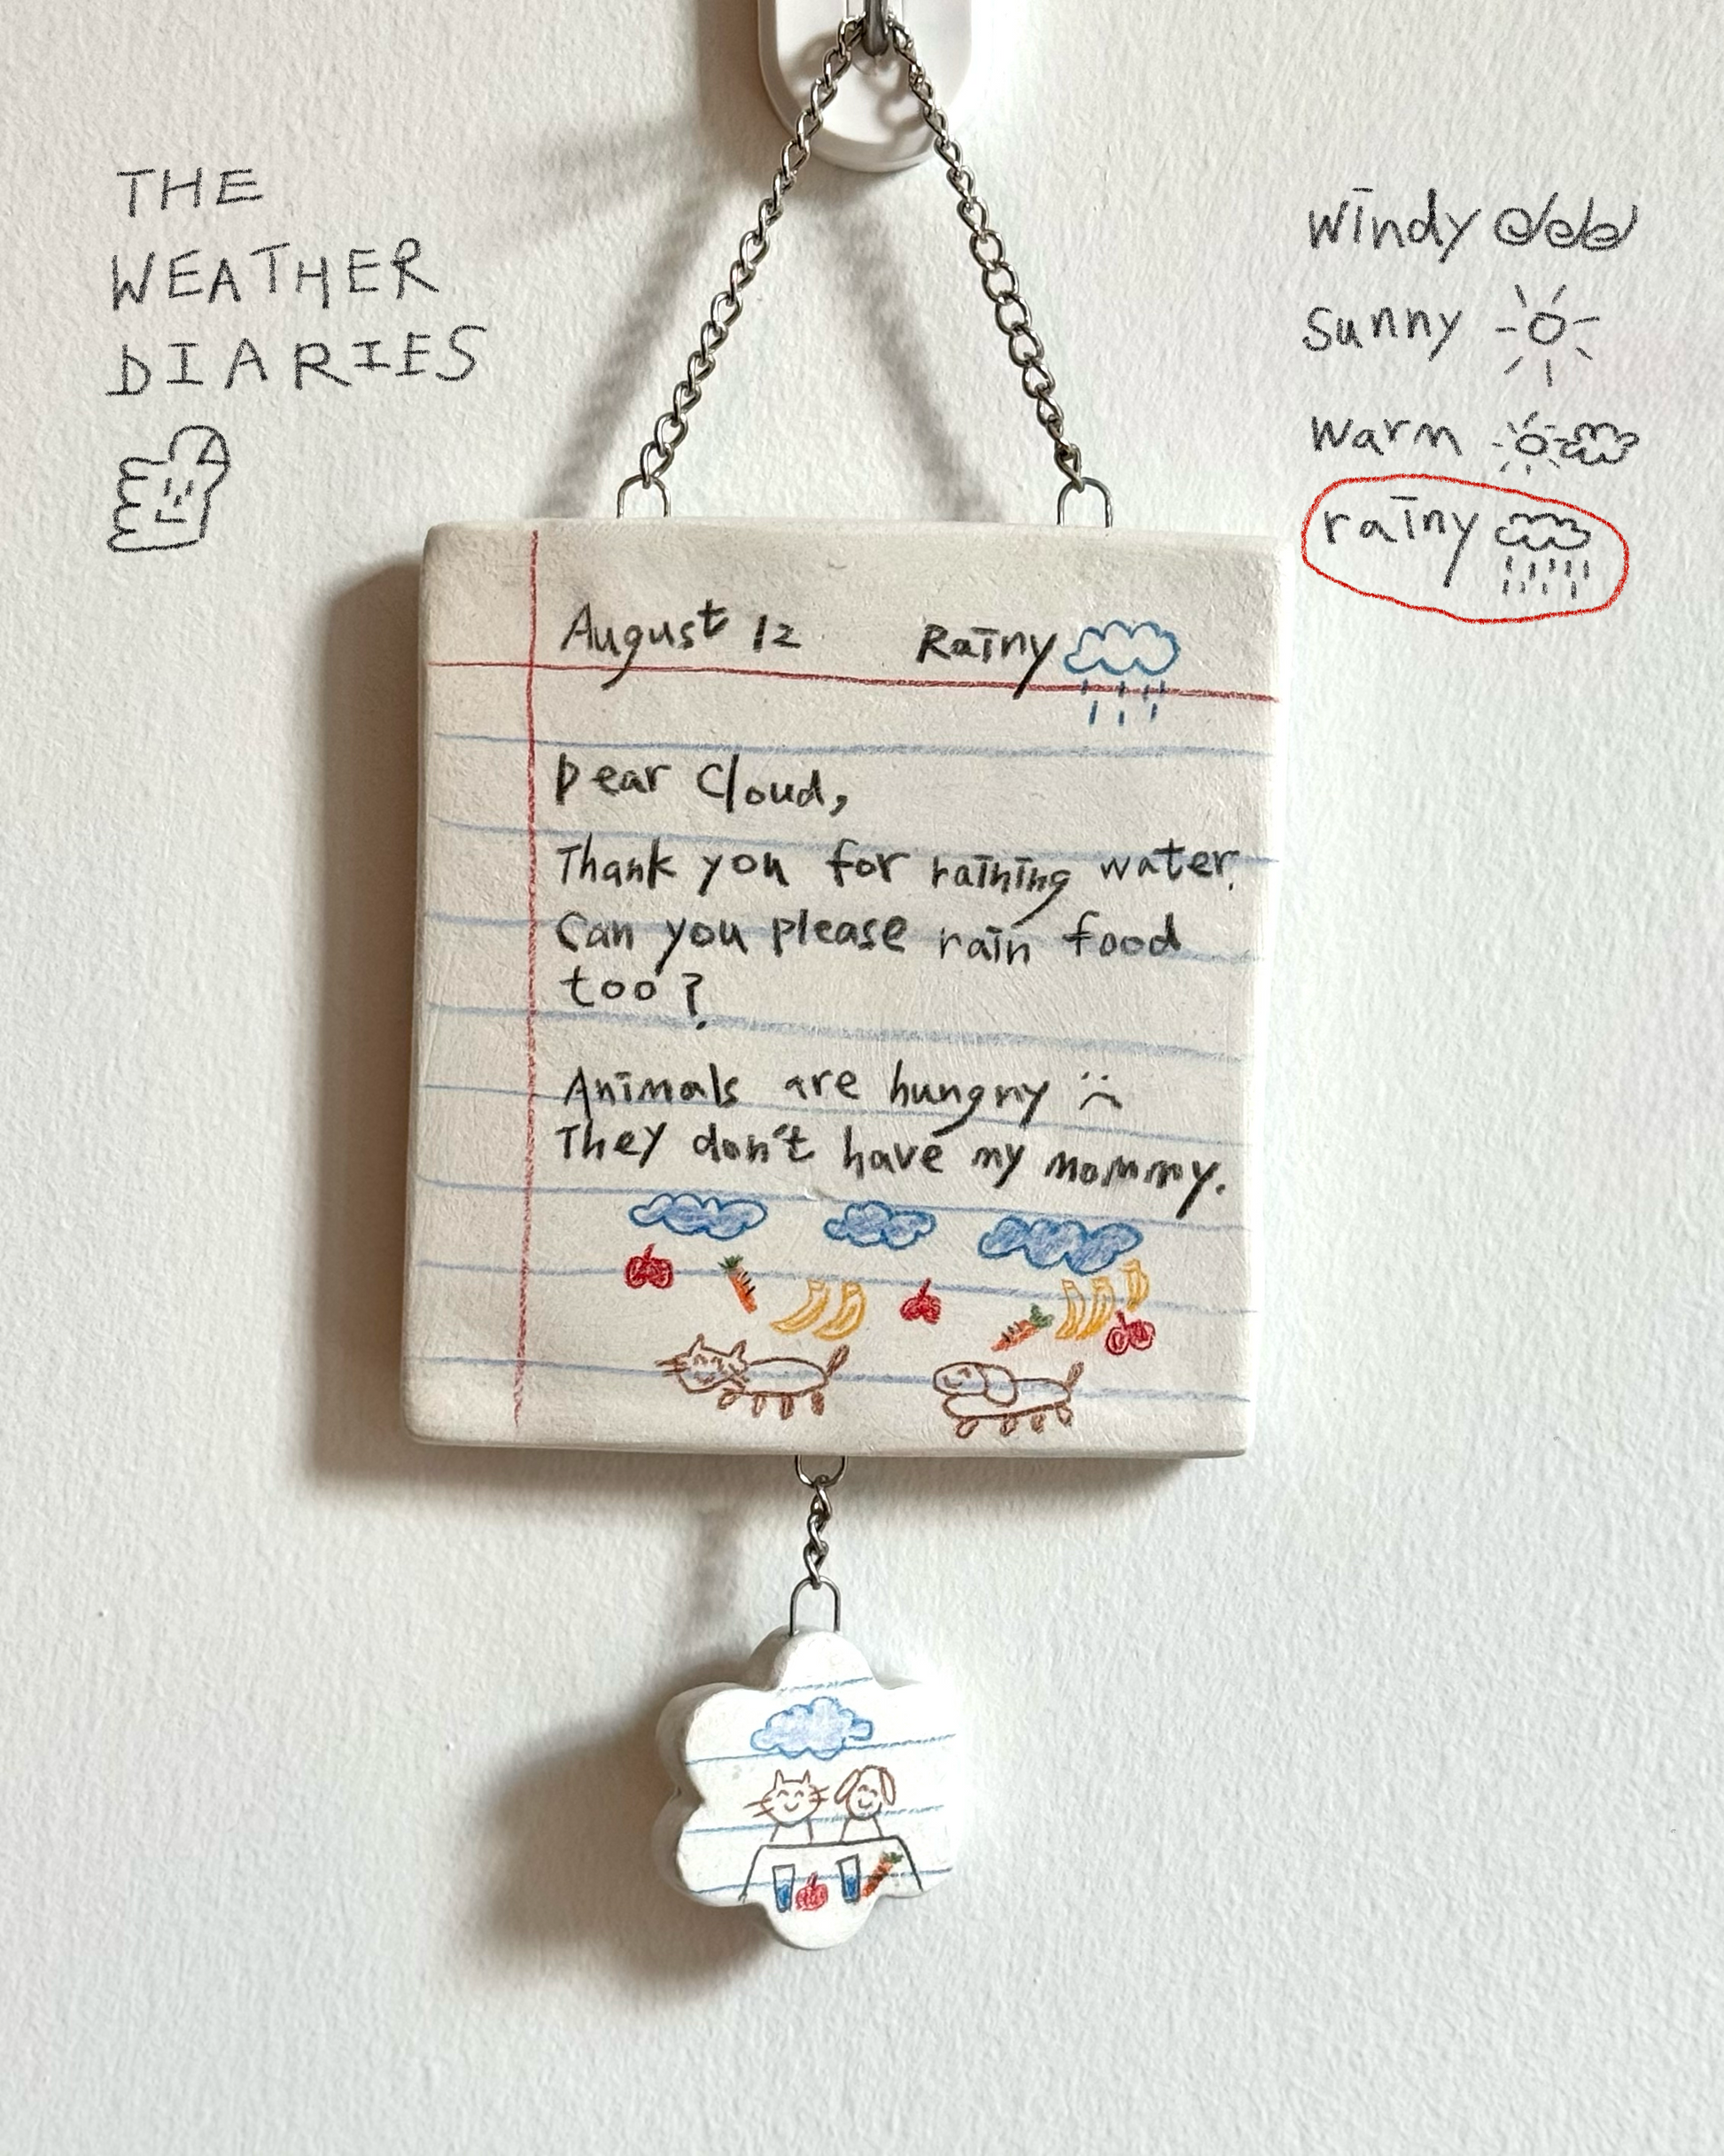 THE
WEATHER
DIARIES
windy
sunny
warm
rainy
August 12 Rainy
Dear Cloud,
Thank you for raining water.
Can you please rain food
too?
Animals are hungry
They don't have my mommy.